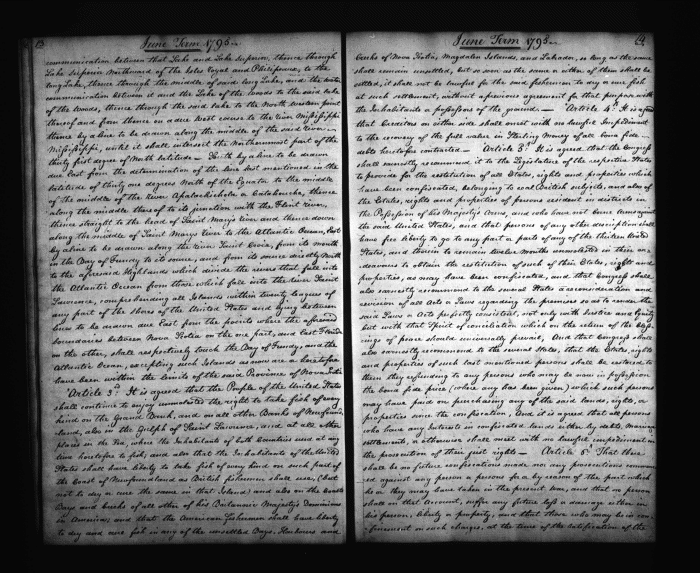 13
June Term 1795
communication between that Lake and Lake Superior, thence through
Lake Superior Northward of the Isles Royal and Philipeaux, to the
long Lake, thence through the middle of said long Lake, and the water
communication between it and the Lake of the Woods to the said Lake
of the Woods, thence through the said Lake to the North western point
thereof and from thence on a due West course to the river Missisippi
thence by a line to be drawn along the middle of the said river
Missisippi, until it shall intersect the Northernmost part of the
thirty first degree of North latitude — South by a line to be drawn
due East from the determination of the line last mentioned in the
latitude of thirty one degrees North of the Equator to the middle
of the middle of the river Apalachicola or Catahouche, thence
along the middle thereof to its junction with the Flint river,
thence straight to the head of Saint Mary's River and thence down
along the middle of Saint Mary's river to the Atlantic Ocean, East
by a line to be drawn along the river Saint Croix, from its mouth
in the Bay of Fundy to its source, and from its source directly North
to the aforesaid Highlands which divide the rivers that fall into
the Atlantic Ocean from those which fall into the river Saint
Lawrence, comprehending all Islands within twenty leagues of
any part of the shores of the United States and lying between
lines to be drawn due East from the points where the aforesaid
boundaries between Nova Scotia on the one part, and East Florida
on the other, shall respectively touch the Bay of Fundy, and the
Atlantic Ocean, excepting such Islands as now are or heretofore
have been within the limits of the said Province of Nova Scotia
Article 3d. It is agreed that the People of the United States
shall continue to enjoy unmolested the right to take fish of every
kind on the Grand Bank, and on all other Banks of Newfound
land, also in the Gulph of Saint Lawrence, and at all other
places in the Sea, where the Inhabitants of both Countries used at any
time heretofore to fish, and also that the Inhabitants of the United
States shall have liberty to take fish of every kind on such part of
the Coast of Newfoundland as British fishermen shall use, (but
not to dry or cure the same in that Island) and also on the Coasts
Bays and Creeks of all other of his Britannic Majesty's Dominions
in America; and that the American Fishermen shall have liberty
to dry and cure fish in any of the unsettled Bays, Harbours and
14
June Term 1795
Creeks of Nova Scotia, Magdalen Islands, and Labrador, so long as the same
shall remain unsettled, but so soon as the same or either of them shall be
settled, it shall not be lawful for the said fishermen to dry or cure fish
at such settlement, without a previous agreement for that purpose with
the Inhabitants or possessors of the ground. — Article 4th. It is agreed
that Creditors on either side shall meet with no lawful Impediment
to the recovery of the full value in Sterling Money of all bona fide
debts heretofore contracted — Article 5th. It is agreed that the Congress
shall earnestly recommend it to the Legislatures of the respective States
to provide for the restitution of all Estates, rights and properties which
have been confiscated, belonging to real British subjects, and also of
the Estates, rights and properties of persons resident in districts in
the Possession of his Majesty's Arms, and who have not borne Arms against
the said United States, and that persons of any other discription shall
have free liberty to go to any part or parts of any of the thirteen United
States, and therein to remain twelve Months unmolested in their en
deavours to obtain the restitution of such of their Estates, rights and
properties, as may have been confiscated, and that Congress shall
also earnestly recommend to the several States a reconsideration and
revision of all Acts or Laws regarding the premises so as to render the
said Laws or Acts perfectly consistent, not only with Justice and Equity
but with that Spirit of conciliation which on the return of the bless
ings of peace should universally prevail, And that Congress shall
also earnestly recommend to the several States, that the Estates, rights
and properties of such last mentioned persons shall be restored to
them they refunding to any persons who may be now in possession
the bona fide price (where any has been given) which such persons
may have paid on purchasing any of the said lands, rights, or
properties since the confiscation. And it is agreed that all persons
who have any Interests in confiscated lands either by debts, marriage
settlements, or otherwise shall meet with no lawful impediment in
the prosecution of their just rights — Article 6th. That there
shall be no future confiscations made nor any prosecutions commenc
ed against any person or persons for or by reason of the part which
he or they may have taken in the present war, and that no person
shall on that Account, suffer any future loss or damage either in
his person, liberty or property, and that those who may be in con
finement on such charges, at the time of the ratification of the